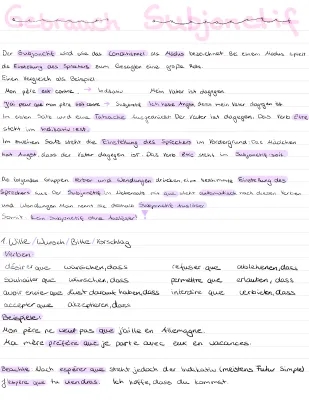 German Subjonctif
Der Subjonctif wird wie das Conditionnel als Modus bezeichnet. Bei einem Modus spielt
die Einstellung des Sprechers zum Gesagten eine große Rolle.
Einen Vergleich als Beispiel:
Mon père est contre. → Indikativ Mein Vater ist dagegen.
J'ai peur que mon père soit contre → Subjonctif Ich habe Angst, dass mein Vater dagegen ist.
Im ersten Satz wird eine Tatsache ausgedrückt: Der Vater ist dagegen. Das Verb être
steht im Indikativ: est.
Im zweiten Satz steht die Einstellung des Sprechers im Vordergrund: Das Mädchen
hat Angst, dass der Vater dagegen ist. Das Verb être steht im Subjonctif: soit.
Die folgenden Gruppen Verben und Wendungen drücken eine bestimmte Einstellung des
Sprechers aus. Der Subjonctif im Nebensatz mit que steht automatisch nach diesen Verben
und Wendungen. Man nennt sie deshalb Subjonctif Auslöser.
Somit: Kein Subjonctif ohne Auslöser!
1. Wille / Wunsch / Bitte / Vorschlag
Verben:
désirer que wünschen, dass refuser que ablehnen, dass
souhaiter que wünschen, dass permettre que erlauben, dass
avoir envie que Lust darauf haben, dass interdire que verbieten, dass
accepter que akzeptieren, dass
Beispiele:
Mon père ne veut pas que j'aille en Allemagne.
Ma mère préfère que je parte avec eux en vacances.
Beachte: Nach espérer que steht jedoch der Indikativ (meistens Futur Simple)
J'espère que tu viendras. Ich hoffe, dass du kommst.